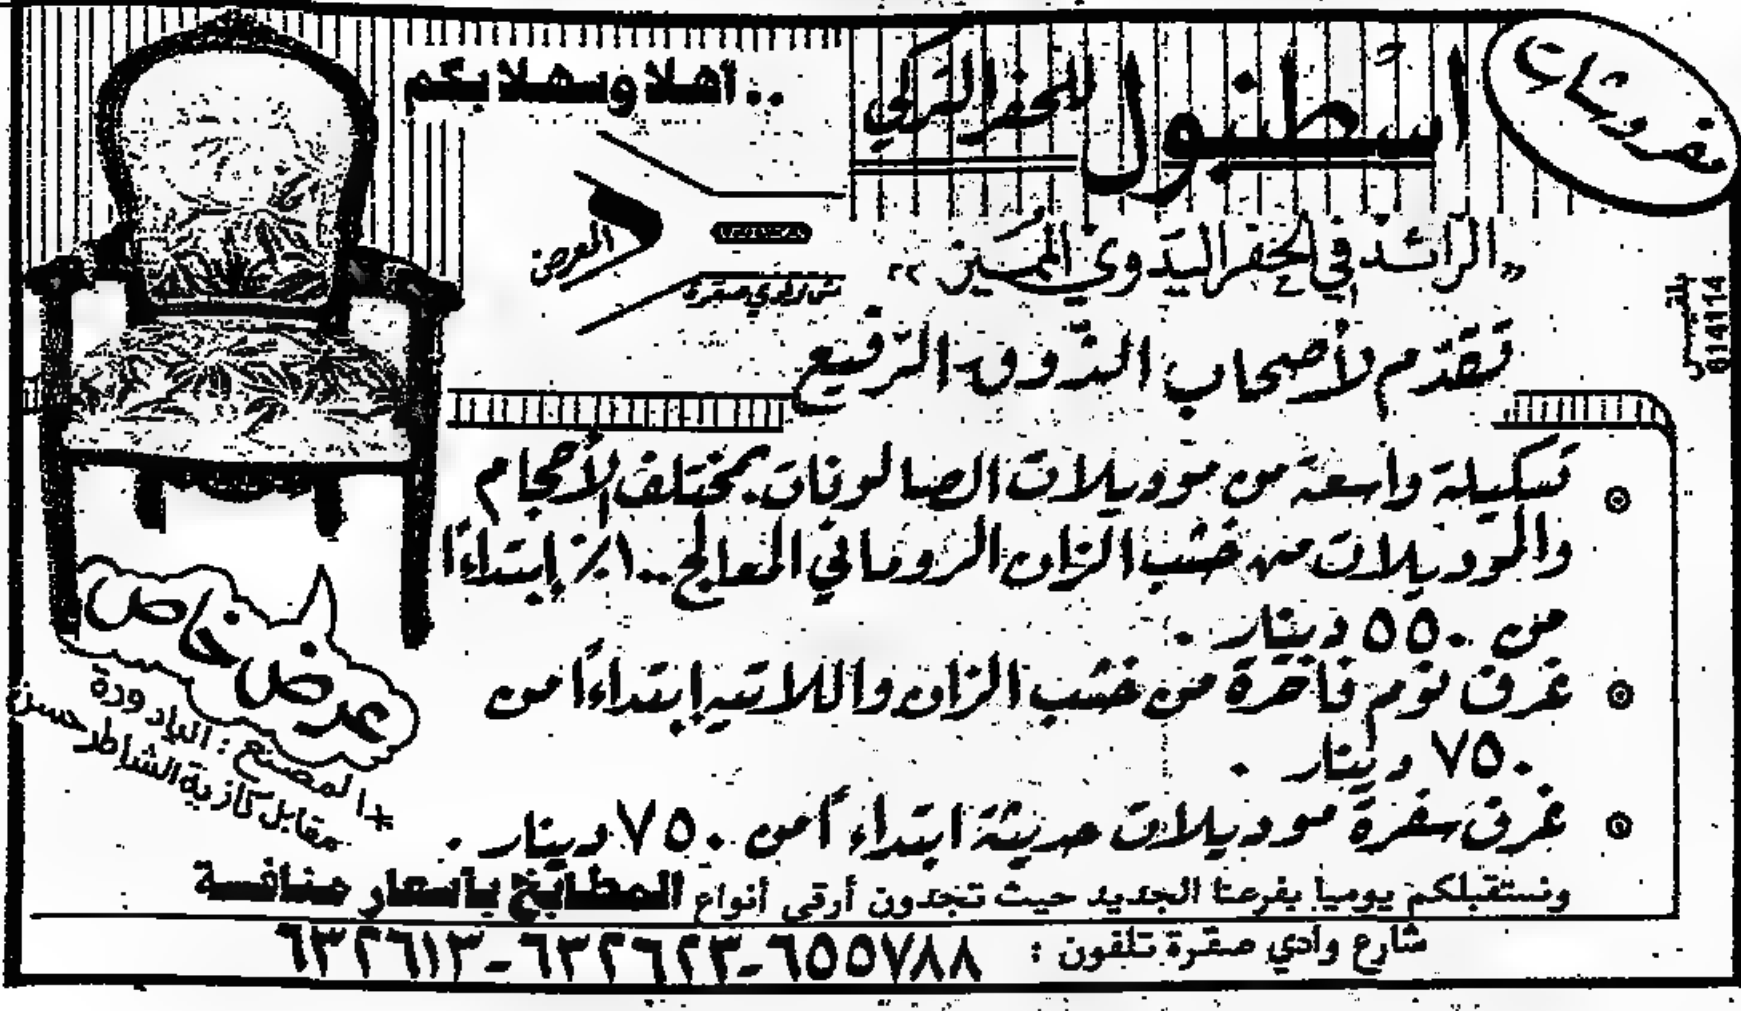 مفروشات
اسطنبول للحفر التركي
.. أهلا وسهلا بكم
"الرائد في الحفر اليدوي المميز"
المعرض
ش وادي صقرة
بلقيس
614114
تقدّم لأصحاب الذوق الرفيع
تشكيلة واسعة من موديلات الصالونات بمختلف الأحجام
والموديلات من خشب الزان الروماني المعالج ١٠٠٪ إبتداءً
من ٥٥٠ دينار .
غرف نوم فاخرة من خشب الزان واللاتيه إبتداءاً من
٧٥٠ دينار .
غرف سفرة موديلات حديثة ابتداءاً من ٧٥٠ دينار .
عرض خاص
+ المصنع : البادورة
مقابل كازية الشاطر حسن
ونستقبلكم يومياً بفرعنا الجديد حيث تجدون أرقى أنواع المطابخ بأسعار منافسة
شارع وادي صقرة تلفون : ٦٥٥٧٨٨-٦٣٢٦٢٣-٦٣٢٦١٣